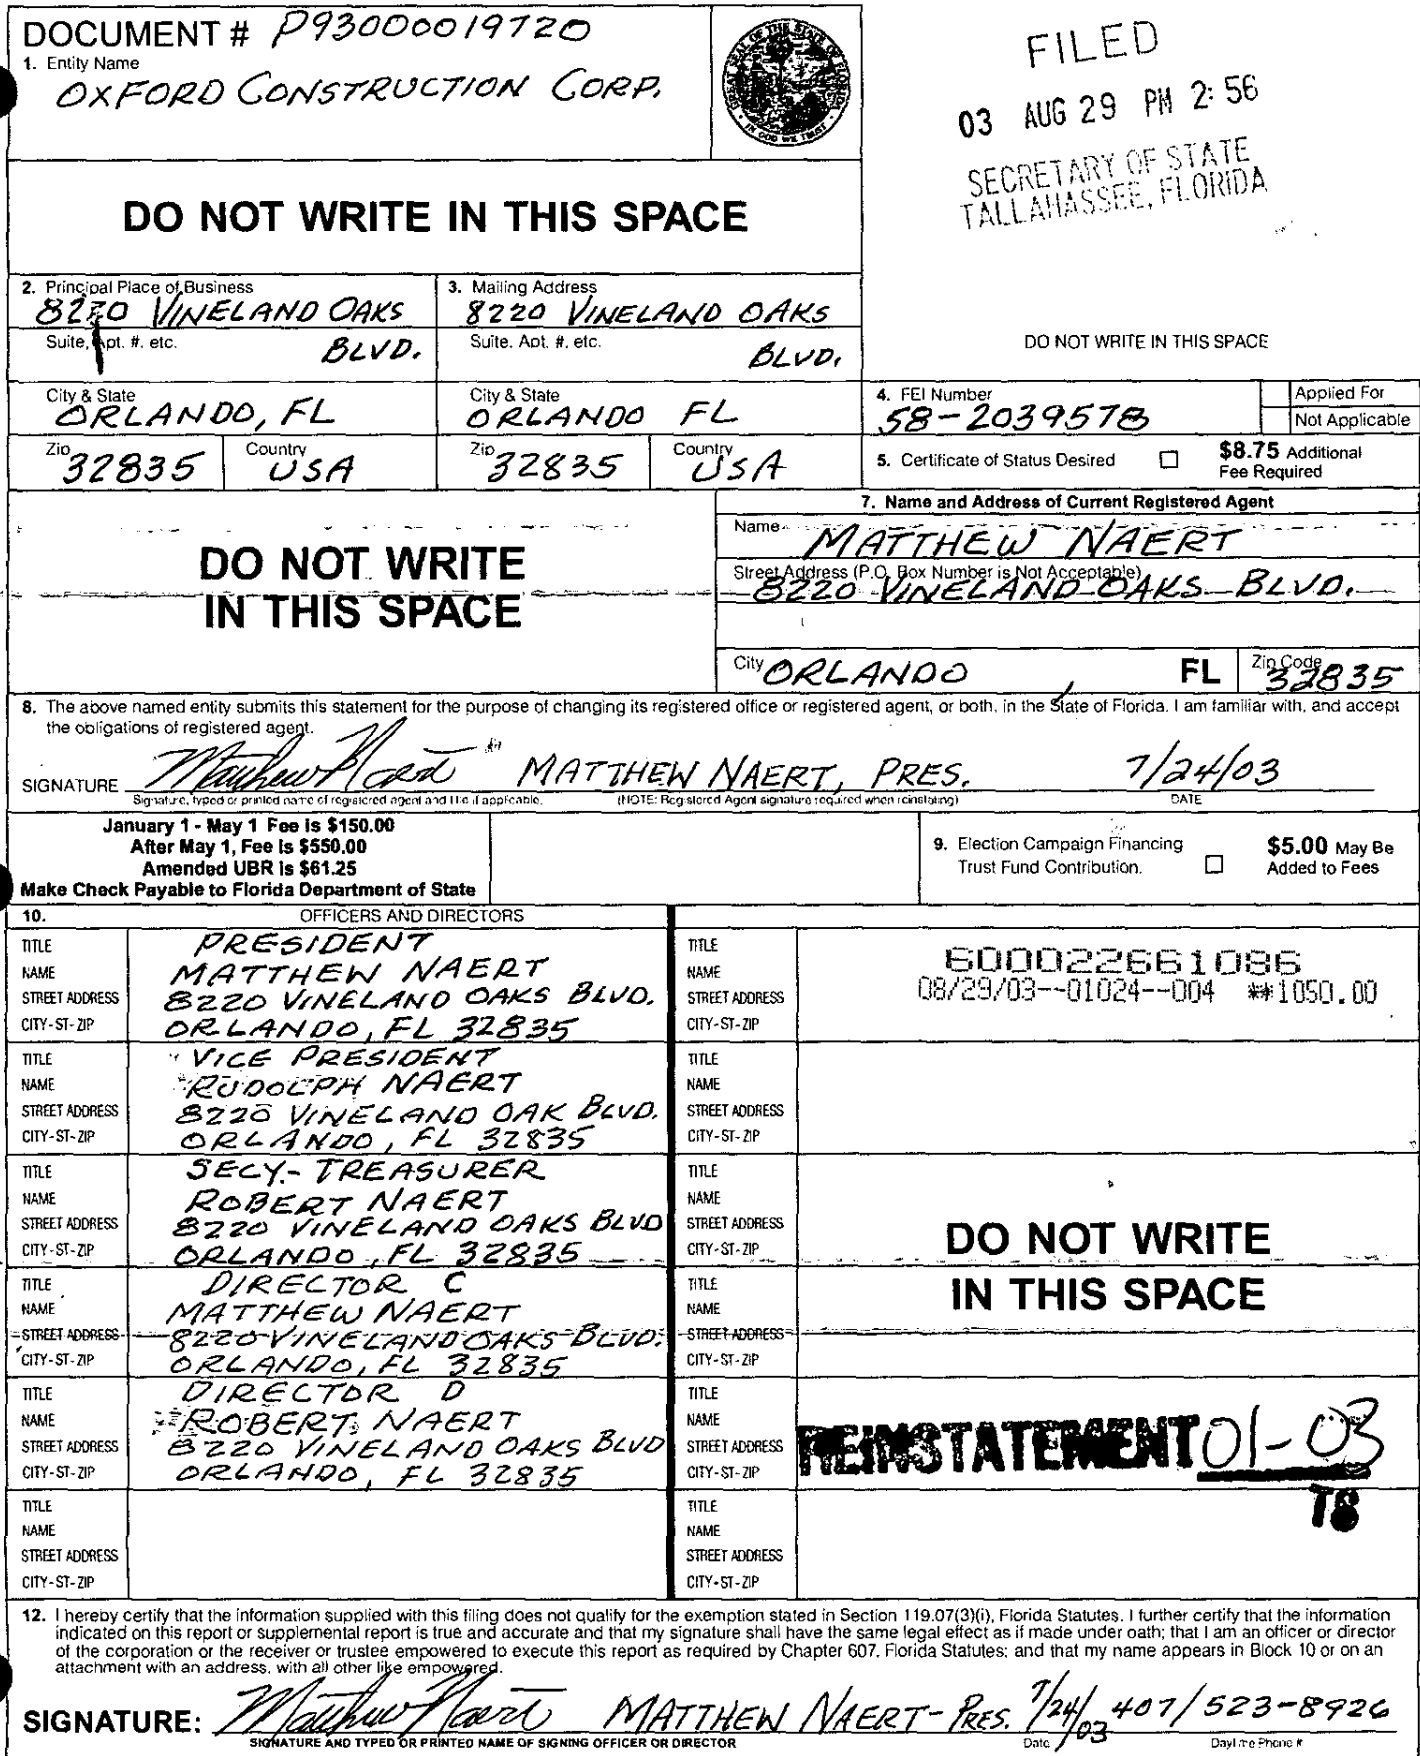 DOCUMENT # P93000019720
1. Entity Name
OXFORD CONSTRUCTION CORP.
GREAT SEAL OF THE STATE OF FLORIDA
IN GOD WE TRUST
FILED
03 AUG 29 PM 2:56
SECRETARY OF STATE
TALLAHASSEE, FLORIDA
DO NOT WRITE IN THIS SPACE
2. Principal Place of Business
8220 VINELAND OAKS
Suite, Apt. #. etc.
BLVD.
3. Mailing Address
8220 VINELAND OAKS
Suite. Apt. #. etc.
BLVD.
DO NOT WRITE IN THIS SPACE
City & State
ORLANDO, FL
City & State
ORLANDO FL
4. FEI Number
58-2039578
Applied For
Not Applicable
Zip
32835
Country
USA
Zip
32835
Country
USA
5. Certificate of Status Desired
$8.75 Additional
Fee Required
DO NOT WRITE
IN THIS SPACE
7. Name and Address of Current Registered Agent
Name
MATTHEW NAERT
Street Address (P.O. Box Number is Not Acceptable)
8220 VINELAND OAKS BLVD.
City ORLANDO, FL Zip Code 32835
8. The above named entity submits this statement for the purpose of changing its registered office or registered agent, or both, in the State of Florida. I am familiar with, and accept
the obligations of registered agent.
SIGNATURE Matthew Naert MATTHEW NAERT, PRES. 7/24/03
Signature, typed or printed name of registered agent and title if applicable. (NOTE: Registered Agent signature required when reinstating) DATE
January 1 - May 1 Fee is $150.00
After May 1, Fee is $550.00
Amended UBR is $61.25
Make Check Payable to Florida Department of State
9. Election Campaign Financing
Trust Fund Contribution.
$5.00 May Be
Added to Fees
10. OFFICERS AND DIRECTORS
TITLE PRESIDENT
NAME MATTHEW NAERT
STREET ADDRESS 8220 VINELAND OAKS BLVD.
CITY-ST-ZIP ORLANDO, FL 32835
TITLE
NAME
STREET ADDRESS
CITY-ST-ZIP
600022661086
08/29/03--01024--004 **1050.00
TITLE VICE PRESIDENT
NAME RUDOLPH NAERT
STREET ADDRESS 8220 VINELAND OAK BLVD.
CITY-ST-ZIP ORLANDO, FL 32835
TITLE
NAME
STREET ADDRESS
CITY-ST-ZIP
TITLE SECY.- TREASURER
NAME ROBERT NAERT
STREET ADDRESS 8220 VINELAND OAKS BLVD
CITY-ST-ZIP ORLANDO, FL 32835
TITLE
NAME
STREET ADDRESS
CITY-ST-ZIP
DO NOT WRITE
IN THIS SPACE
TITLE DIRECTOR C
NAME MATTHEW NAERT
STREET ADDRESS 8220 VINELAND OAKS BLVD.
CITY-ST-ZIP ORLANDO, FL 32835
TITLE
NAME
STREET ADDRESS
CITY-ST-ZIP
TITLE DIRECTOR D
NAME ROBERT NAERT
STREET ADDRESS 8220 VINELAND OAKS BLVD
CITY-ST-ZIP ORLANDO, FL 32835
TITLE
NAME
STREET ADDRESS
CITY-ST-ZIP
REINSTATEMENT 01-03
TB
TITLE
NAME
STREET ADDRESS
CITY-ST-ZIP
TITLE
NAME
STREET ADDRESS
CITY-ST-ZIP
12. I hereby certify that the information supplied with this filing does not qualify for the exemption stated in Section 119.07(3)(i), Florida Statutes. I further certify that the information
indicated on this report or supplemental report is true and accurate and that my signature shall have the same legal effect as if made under oath; that I am an officer or director
of the corporation or the receiver or trustee empowered to execute this report as required by Chapter 607, Florida Statutes; and that my name appears in Block 10 or on an
attachment with an address, with all other like empowered.
SIGNATURE: Matthew Naert MATTHEW NAERT-PRES. 7/24/03 407/523-8926
SIGNATURE AND TYPED OR PRINTED NAME OF SIGNING OFFICER OR DIRECTOR Date Daytime Phone #